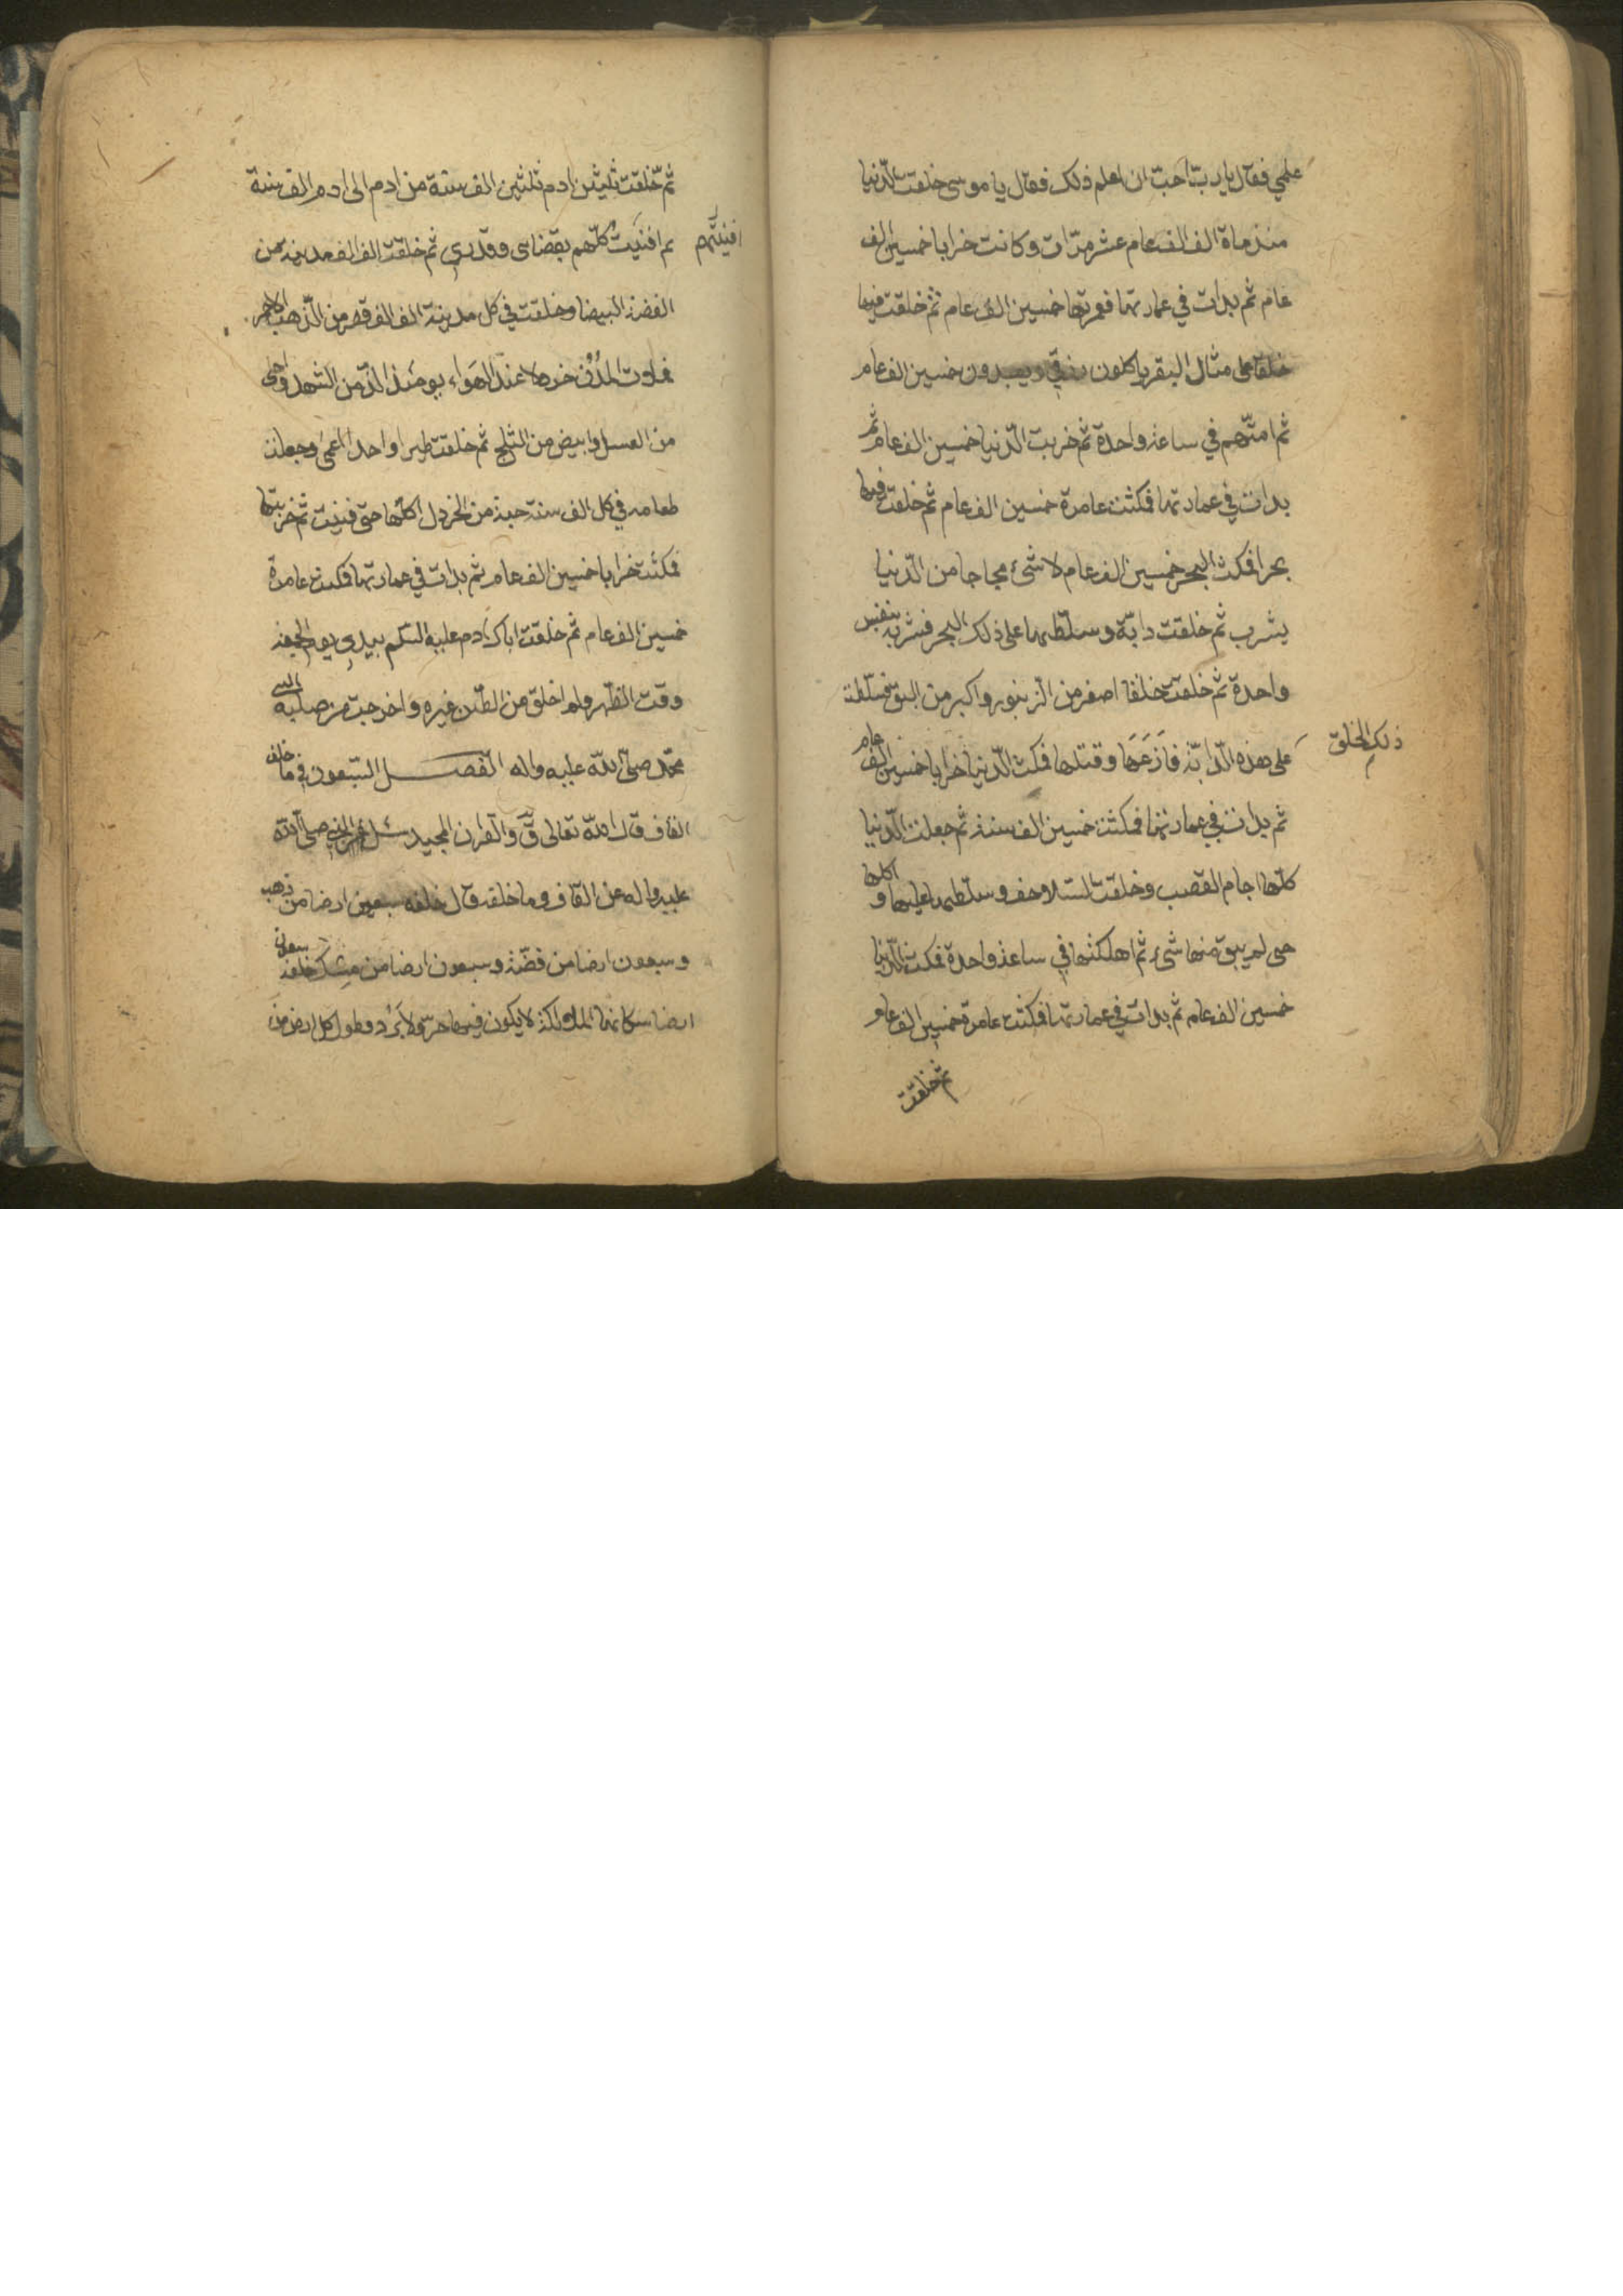 علمي فقال يا ربّ احبّ ان اعلم ذلك فقال يا موسى خلقت الدّنيا
منذ ماة الف الف عام عشر مرّات وكانت خرابا خمسين الف
عام ثم بدات في عمارتها فعمرتها خمسين الف عام ثم خلقت فيها
خلقا على مثال البقر ياكلون رزقي ويعبدون خمسين الف عام
ثم امتّهم في ساعة واحدة ثم خربت الدّنيا خمسين الف عام ثم
بدات في عمارتها فمكثت عامرة خمسين الف عام ثم خلقت فيها
بحرا فمكث البحر خمسين الف عام لا شيء مجاجا من الدّنيا
يشرب ثم خلقت دابّة وسلّطتها على ذلك البحر فشربه بنفس
واحدة ثم خلقت خلقا اصغر من الزّنبور واكبر من البق فسلّطت
ذلك الخلق
على هذه الدّابّة فلذعها وقتلها فمكث الدّنيا خرابا خمسين الف عام
ثم بدات في عمارتها فمكثت خمسين الف سنة ثم جعلت الدّنيا
كلّها اجام القصب وخلقت السّلاحف وسلّطتها عليها و اكلها
حتى لم يبق منها شيء ثم اهلكتها في ساعة واحدة فمكث الدّنيا
خمسين الف عام ثم بدات في عمارتها فمكثت عامرة خمسين الف عام
ثم خلقت
ثمّ خلقت ثلثين ادم ثلثين الف سنة من ادم الى ادم الف سنة
افنيتهم
ثم افنيت كلّهم بقضائى وقدري ثم خلقت الف الف مدينة من
الفضة البيضا وخلقت في كل مدينة الف الف قصر من الذّهب الاحمر
فملات المدن خردلا عند الهواء يومئذ الذّ من الشهد واحلى
من العسل وابيض من الثلج ثم خلقت طيرا واحدا اعمى وجعلت
طعامه في كل الف سنة حبة من الخردل اكلها حتى فنيت ثم خربتها
فمكثت خرابا خمسين الف عام ثم بدات في عمارتها فمكثت عامرة
خمسين الف عام ثم خلقت اباك ادم عليه السّلم بيدي يوم الجمعة
وقت الظهر ولم اخلق من الطّين غيره واخرجت من صلبه النبي
محمّد صلى الله عليه واله الفصل السّبعون في ما خلف
القاف قال الله تعالى قٓ والقران المجيد سئل عن النبي صلى الله
عليه واله عن القاف وما خلفه قال خلفه سبعين ارضا من ذهب
وسبعون ارضا من فضّة وسبعون ارضا من مسك خلفه سبعون
ارضا سكانها الملائكة لا يكون فيها حرّ ولا برد وطول كل ارض من